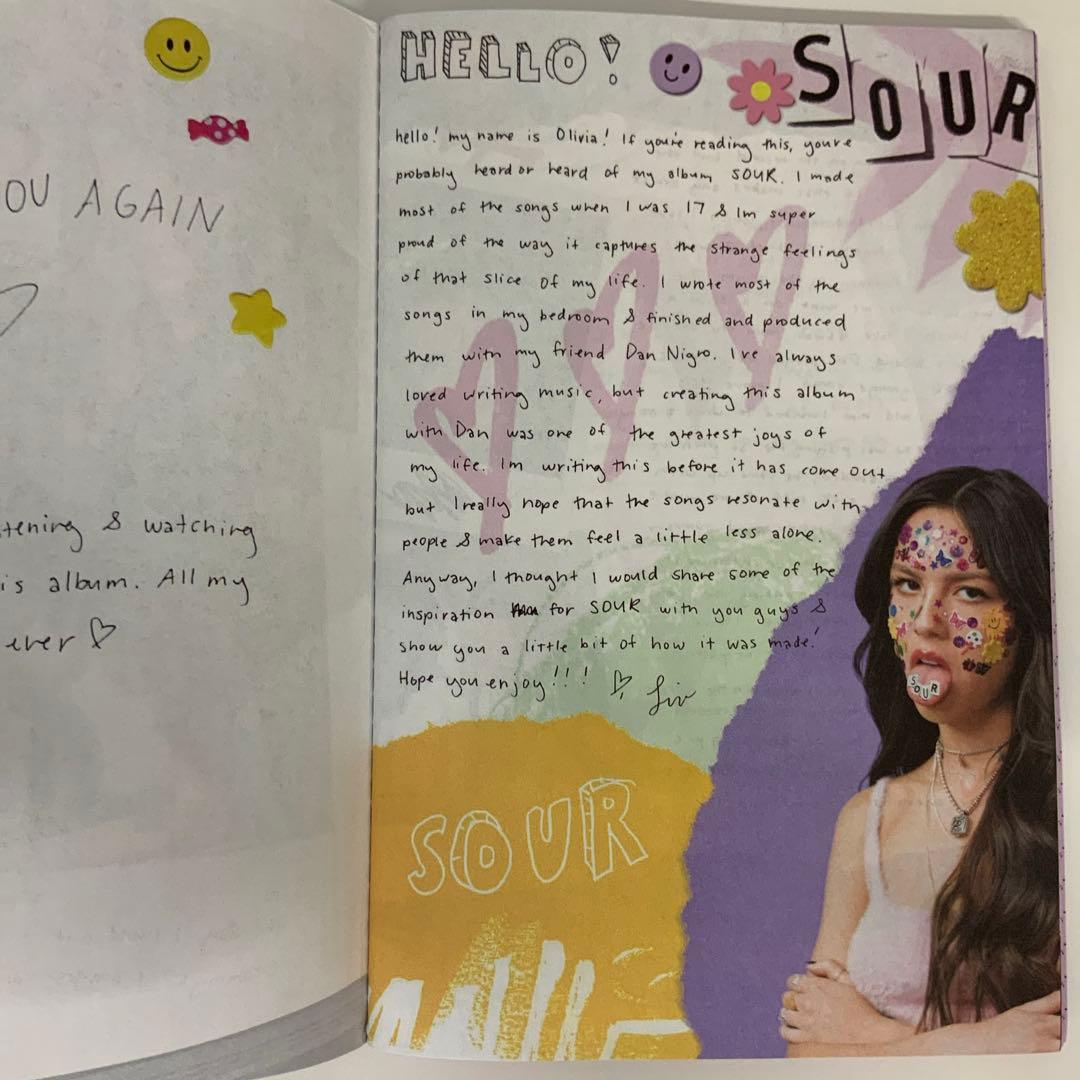 OU AGAIN
tening & watching
is album. All my
ever
HELLO!
SOUR
hello! my name is Olivia! If you're reading this, youve
probably heard or heard of my album SOUR. I made
most of the songs when I was 17 & Im super
proud of the way it captures the strange feelings
of that slice of my life. I wrote most of the
songs in my bedroom & finished and produced
them with my friend Dan Nigro. Ive always
loved writing music, but creating this album
with Dan was one of the greatest joys of
my life. Im writing this before it has come out
but I really hope that the songs resonate with
people & make them feel a little less alone.
Anyway, I thought I would share some of the
inspiration for SOUR with you guys &
show you a little bit of how it was made!
Hope you enjoy!!! Liv
SOUR
SOUR